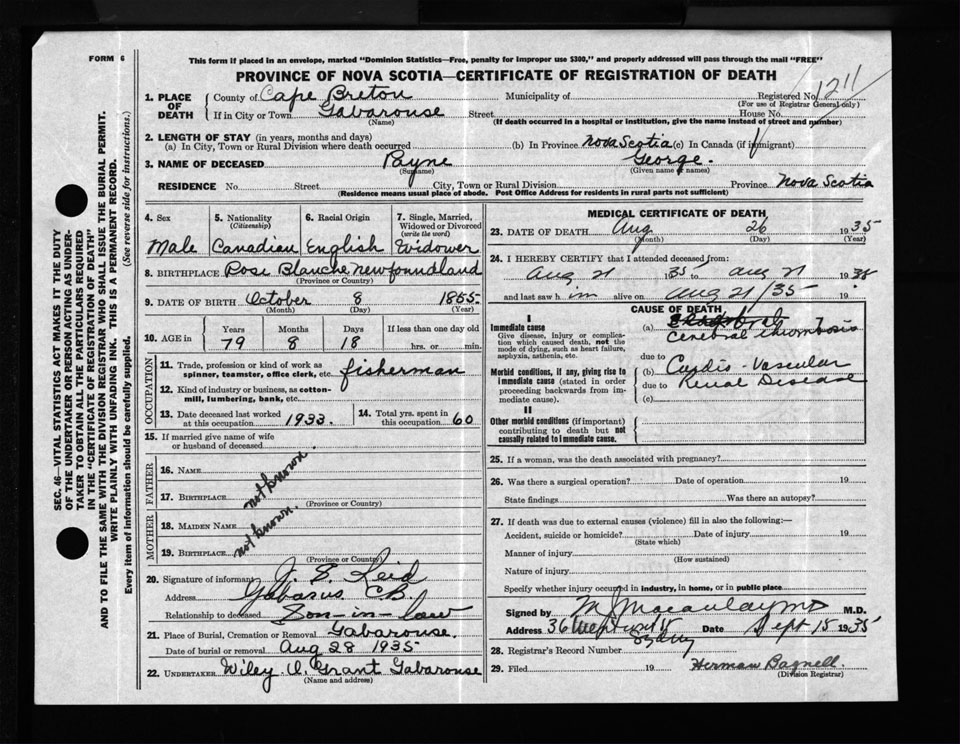 FORM 6
This form if placed in an envelope, marked "Dominion Statistics—Free, penalty for improper use $300," and properly addressed will pass through the mail "FREE"
PROVINCE OF NOVA SCOTIA—CERTIFICATE OF REGISTRATION OF DEATH
SEC. 46—VITAL STATISTICS ACT MAKES IT THE DUTY
OF THE UNDERTAKER OR PERSON ACTING AS UNDER-
TAKER TO OBTAIN ALL THE PARTICULARS REQUIRED
IN THE "CERTIFICATE OF REGISTRATION OF DEATH"
AND TO FILE THE SAME WITH THE DIVISION REGISTRAR WHO SHALL ISSUE THE BURIAL PERMIT.
WRITE PLAINLY WITH UNFADING INK. THIS IS A PERMANENT RECORD.
Every item of information should be carefully supplied. (See reverse side for instructions.)
1. PLACE OF DEATH
County of Cape Breton Municipality of Registered No. 1211
(For use of Registrar General only)
If in City or Town Gabarouse Street House No.
(Name) (If death occurred in a hospital or institution, give the name instead of street and number)
2. LENGTH OF STAY (in years, months and days)
(a) In City, Town or Rural Division where death occurred (b) In Province Nova Scotia (c) In Canada (if immigrant)
3. NAME OF DECEASED Payne George.
(Surname) (Given name or names)
RESIDENCE No. Street City, Town or Rural Division Province Nova Scotia
(Residence means usual place of abode. Post Office Address for residents in rural parts not sufficient)
4. Sex 5. Nationality (Citizenship) 6. Racial Origin 7. Single, Married, Widowed or Divorced (write the word)
Male Canadian English Widower
8. BIRTHPLACE Rose Blanche, Newfoundland
(Province or Country)
9. DATE OF BIRTH October 8 1855.
(Month) (Day) (Year)
10. AGE in Years Months Days If less than one day old
79 8 18 hrs. or min.
OCCUPATION
11. Trade, profession or kind of work as spinner, teamster, office clerk, etc. fisherman
12. Kind of industry or business, as cotton-mill, lumbering, bank, etc.
13. Date deceased last worked at this occupation 1933. 14. Total yrs. spent in this occupation 60
15. If married give name of wife or husband of deceased
FATHER
16. NAME
not known.
17. BIRTHPLACE
(Province or Country)
MOTHER
18. MAIDEN NAME
not known.
19. BIRTHPLACE
(Province or Country)
20. Signature of informant J. E. Reid
Address Gabarus CB.
Relationship to deceased Son-in-law
21. Place of Burial, Cremation or Removal Gabarouse.
Date of burial or removal Aug 28 1935
22. UNDERTAKER Wiley A. Grant Gabarouse
(Name and address)
MEDICAL CERTIFICATE OF DEATH
23. DATE OF DEATH Aug 26 1935
(Month) (Day) (Year)
24. I HEREBY CERTIFY that I attended deceased from:
Aug 21 1935 to Aug 21 1935
and last saw him alive on Aug 21/35 19
CAUSE OF DEATH
I
Immediate cause
Give disease, injury or complication which caused death, not the mode of dying, such as heart failure, asphyxia, asthenia, etc.
(a) Cerebral thrombosis
due to
Morbid conditions, if any, giving rise to immediate cause (stated in order proceeding backwards from immediate cause).
(b) Cardio-Vascular
due to Renal Disease
(c)
II
Other morbid conditions (if important) contributing to death but not causally related to immediate cause.
25. If a woman, was the death associated with pregnancy?
26. Was there a surgical operation? Date of operation 19
State findings Was there an autopsy?
27. If death was due to external causes (violence) fill in also the following:—
Accident, suicide or homicide? Date of injury 19
(State which)
Manner of injury
(How sustained)
Nature of injury
Specify whether injury occurred in industry, in home, or in public place
Signed by M J Macaulay MD M.D.
Address 36 Sydney Date Sept 15 1935
28. Registrar's Record Number
29. Filed 19 Herman Bagnell.
(Division Registrar)